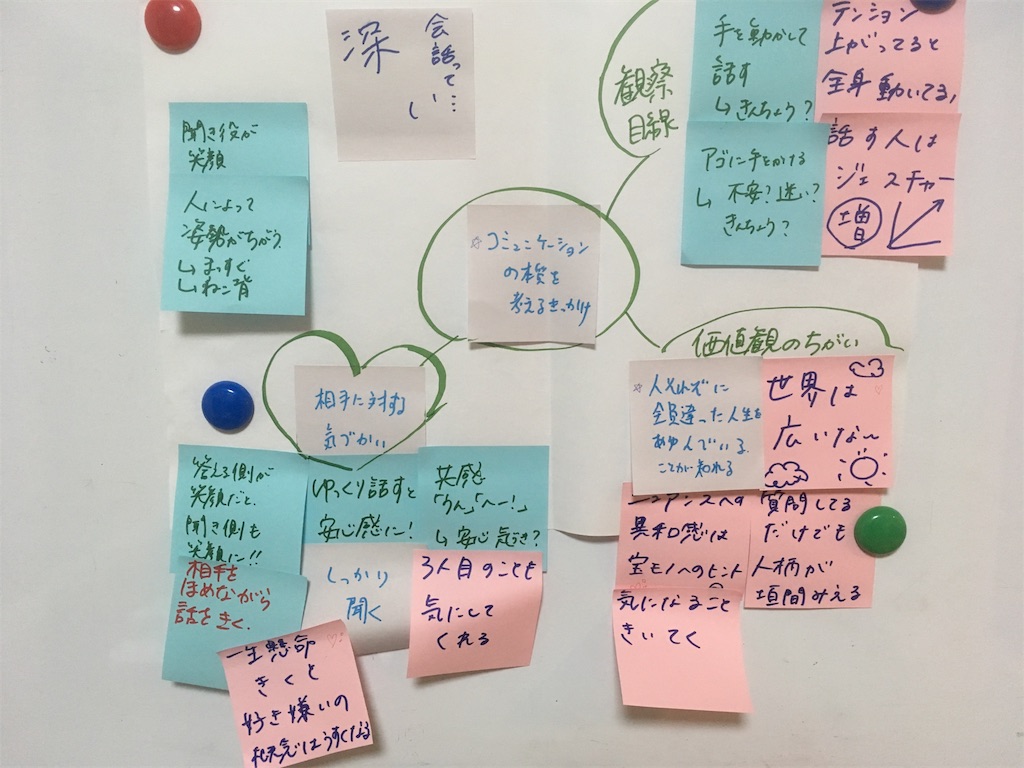 会話って…
深
い
観察
目線
手を動かして
話す
↳きんちょう?
テンション
上がってると
全身動いてる!
アゴに手をかける
↳不安?迷い?
きんちょう?
話す人は
ジェスチャー
増
聞き役が
笑顔
人によって
姿勢がちがう
↳まっすぐ
↳ねこ背
☆コミュニケーション
の本質を
考えるきっかけ
相手に対する
気づかい
答える側が
笑顔だと、
聞き側も
笑顔に!!
ゆっくり話すと
安心感に!
共感
「うん」「へー!」
↳安心気づき?
相手を
ほめながら
話をきく。
しっかり
聞く
3人目のことも
気にして
くれる
一生懸命
きくと
好き嫌いの
はうすくなる
価値観のちがい
☆人それぞれに
全員違った人生を
あゆんでいる
ことが知れる
世界は
広いな〜
ニュアンスへの
異和感は
宝モノへのヒント
質問してる
だけでも
人柄が
垣間みえる
気になること
きいてく